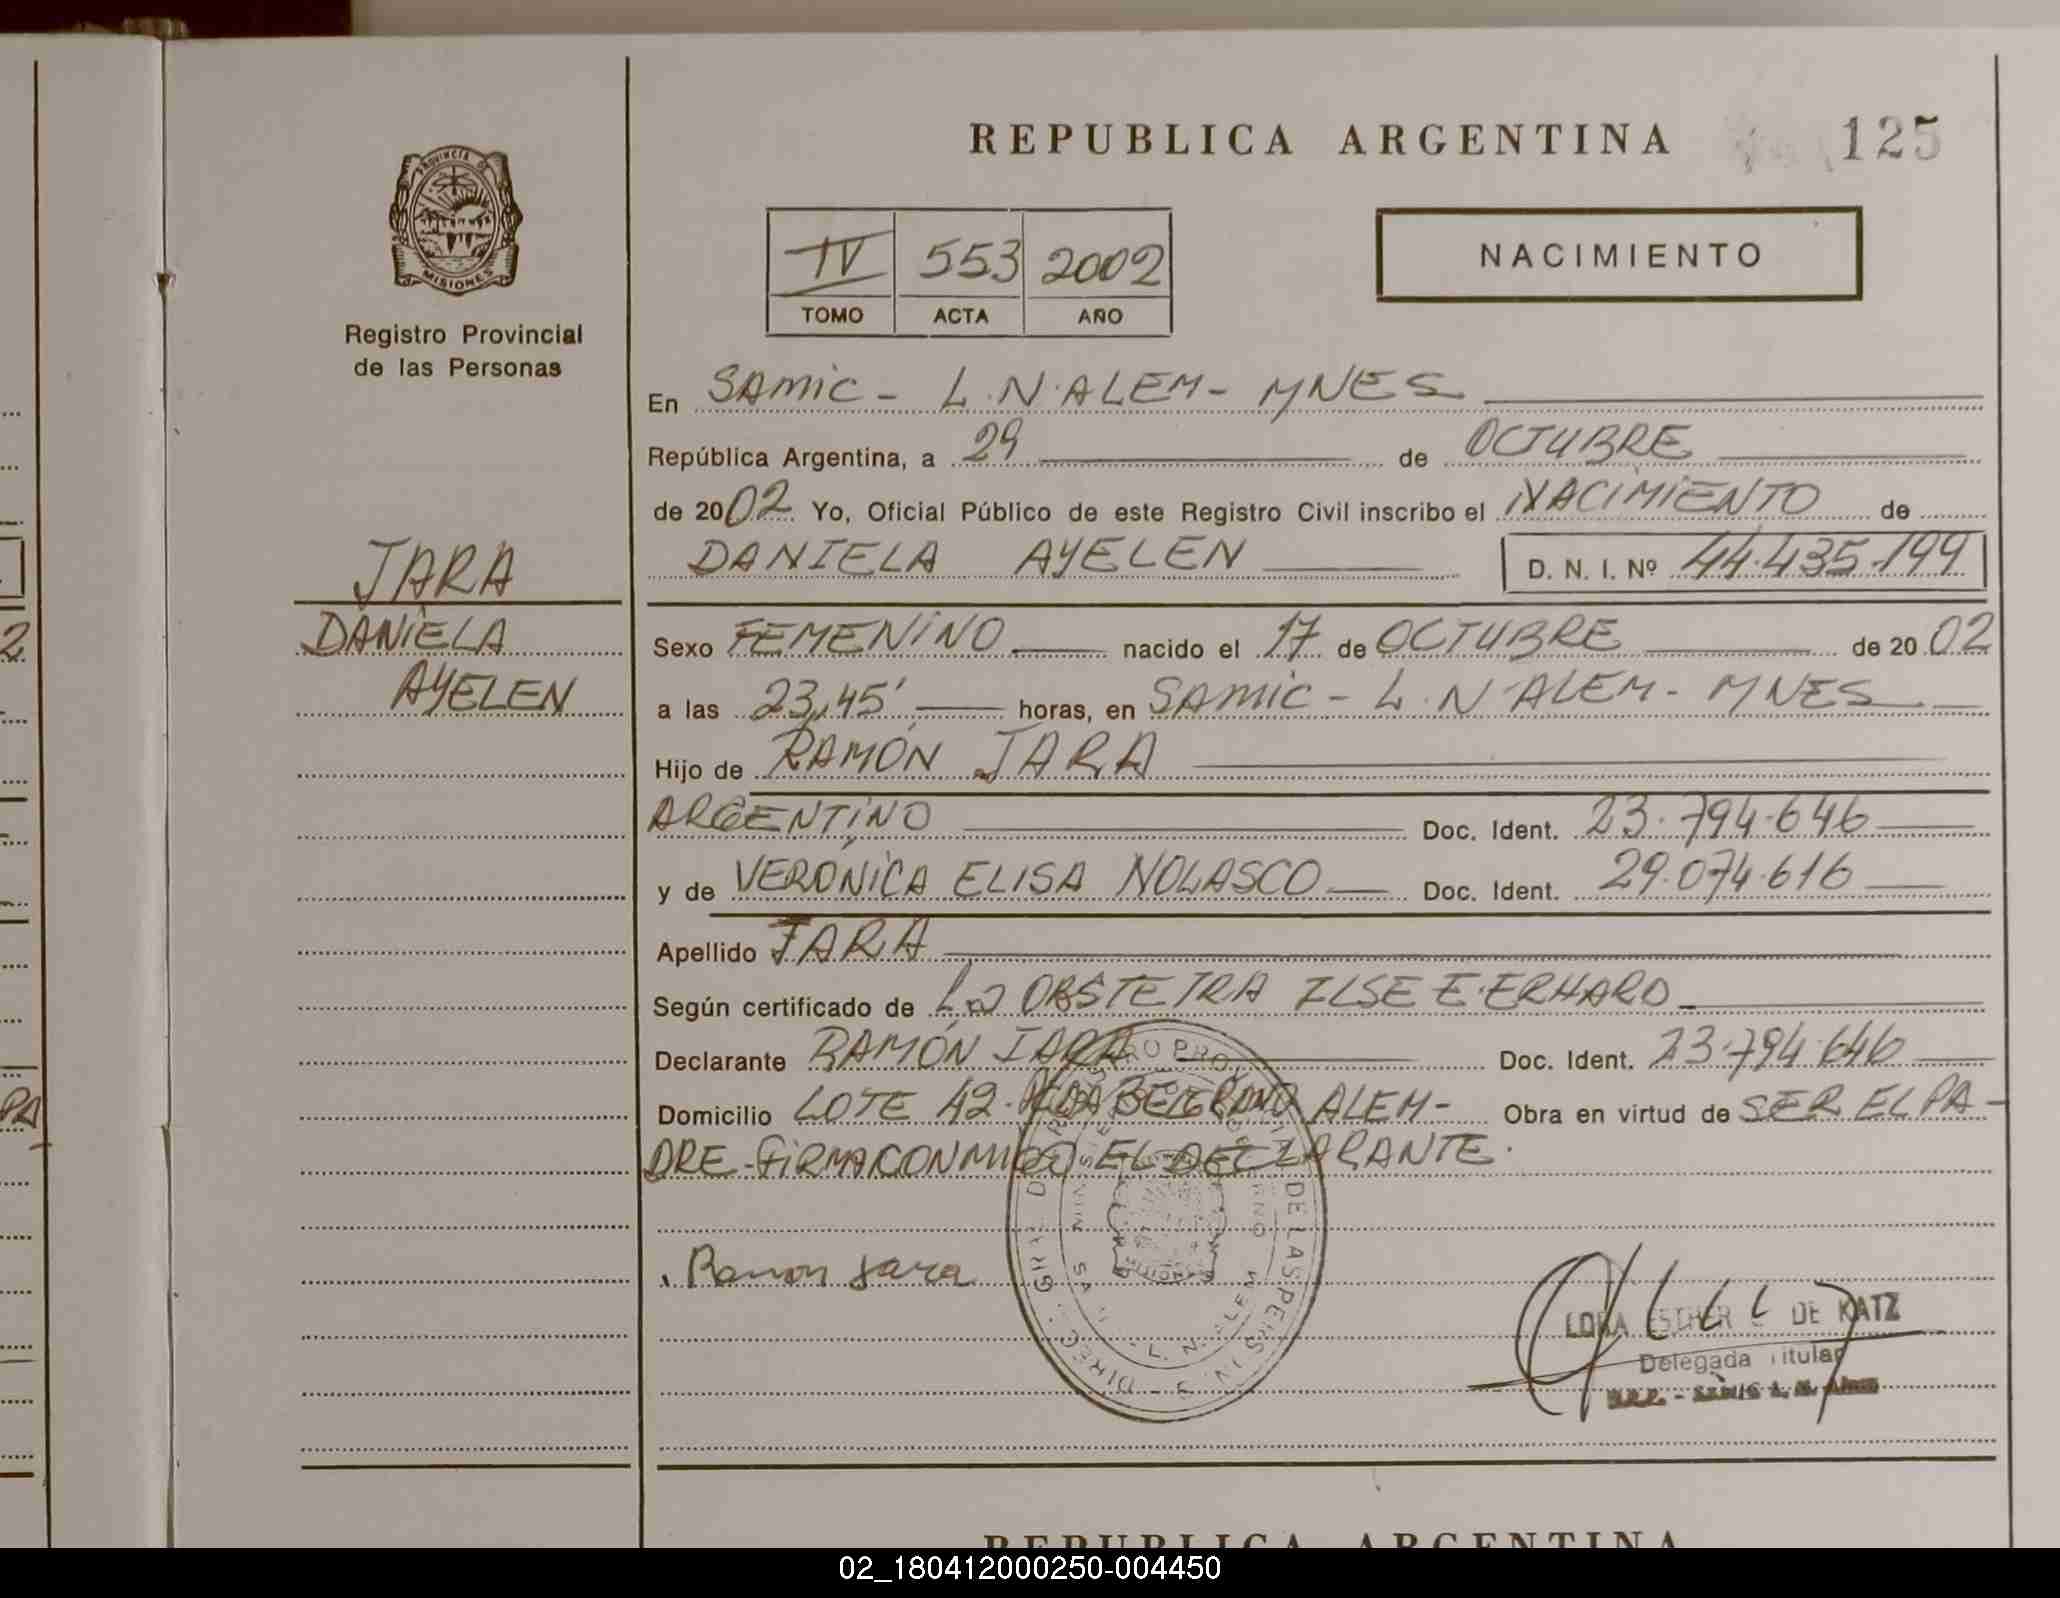 REPUBLICA ARGENTINA
125
PROVINCIA DE
MISIONES
Registro Provincial
de las Personas
IV 553 2002
TOMO ACTA AÑO
NACIMIENTO
En SAMIC - L.N.ALEM - MNES
República Argentina, a 29 de OCTUBRE
de 2002 Yo, Oficial Público de este Registro Civil inscribo el NACIMIENTO de
DANIELA AYELEN D. N. I. Nº 44.435.199
JARA
DANIELA
AYELEN
Sexo FEMENINO nacido el 17 de OCTUBRE de 2002
a las 23,45' horas, en SAMIC - L.N ALEM - MNES
Hijo de RAMÓN JARA
ARGENTINO Doc. Ident. 23.794.646
y de VERÓNICA ELISA NOLASCO Doc. Ident. 29.074.616
Apellido JARA
Según certificado de La OBSTETRA ILSE E. ERHARD
Declarante RAMÓN JARA Doc. Ident. 23.794.646
Domicilio LOTE 42. BELGRANO ALEM - Obra en virtud de SER EL PA-
DRE. FIRMA CONMIGO EL DECLARANTE.
Ramon Jara
ESTHER DE KATZ
Delegada Titular
02_180412000250-004450
REPUBLICA ARGENTINA